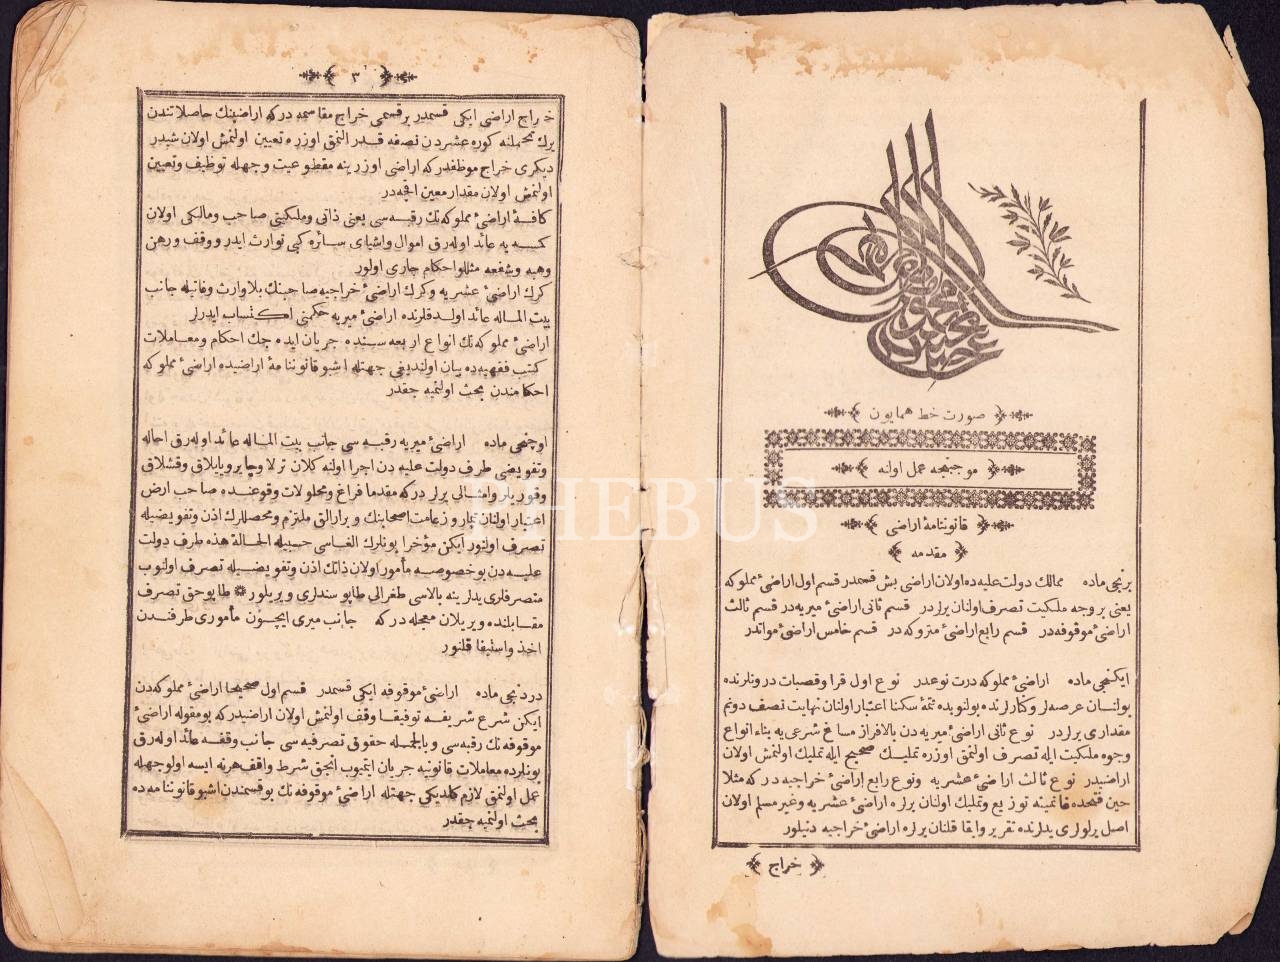 صورت خط همایون
موجبنجه عمل اولنه
قانوننامهٔ اراضی
مقدمه
برنجی ماده ممالك دولت علیه ده اولان اراضی بش قسمدر قسم اول اراضیٔ مملوكه
یعنی بر وجه ملكیت تصرف اولنان یرلردر قسم ثانی اراضیٔ میریه در قسم ثالث
اراضیٔ موقوفه در قسم رابع اراضیٔ متروكه در قسم خامس اراضیٔ مواتدر
ایكنجی ماده اراضیٔ مملوكه درت نوعدر نوع اول قرا وقصبات درونلرنده
بولنان عرصه لر وكنارلرنده بولنوبده تتمهٔ سكنا اعتبار اولنان نهایت نصف دونم
مقداری یرلردر نوع ثانی اراضیٔ میریه دن بالافراز مساغ شرعی یه بناء انواع
وجوه ملكیت ایله تصرف اولنمق اوزره تملیك صحیح ایله تملیك اولنمش اولان
اراضیدر نوع ثالث اراضیٔ عشریه ونوع رابع اراضیٔ خراجیه در كه مثلا
حین فتحده غانمینه توزیع وتملیك اولنان یرلره اراضیٔ عشریه وغیر مسلم اولان
اصل یرلولری یدلرنده تقریر وابقا قلنان یرلره اراضیٔ خراجیه دنیلور
خراج
٣
خراج اراضی ایكی قسمدر بر قسمی خراج مقاسمه در كه اراضینك حاصلاتندن
یرك تحملنه كوره عشردن نصفه قدر النمق اوزره تعیین اولنمش اولان شیدر
دیكری خراج موظفدر كه اراضی اوزرینه مقطوعیت وجهله توظیف وتعیین
اولنمش اولان مقدار معین اقچه در
كافهٔ اراضیٔ مملوكه نك رقبه سی یعنی ذاتی وملكیتی صاحب ومالكی اولان
كمسه یه عائد اوله رق اموال واشیای سائره كبی توارث ایدر ووقف ورهن
وهبه وشفعه مثللو احكام جاری اولور
كرك اراضیٔ عشریه وكرك اراضیٔ خراجیه صاحبنك بلا وارث وفاتیله جانب
بیت الماله عائد اولدقلرنده اراضیٔ میریه حكمنی اكتساب ایدرلر
اراضیٔ مملوكه نك انواع اربعه سنده جریان ایده جك احكام ومعاملات
كتب فقهیه ده بیان اولندیغی جهتله اشبو قانوننامهٔ اراضیده اراضیٔ مملوكه
احكامندن بحث اولنمیه جقدر
اوچنجی ماده اراضیٔ میریه رقبه سی جانب بیت الماله عائد اوله رق احاله
وتفویضی طرف دولت علیه دن اجرا اولنه كلان ترلا وچایر ویایلاق وقشلاق
وقوریلر وامثالی یرلر در كه مقدما فراغ ومحلولات وقوعنده صاحب ارض
اعتبار اولنان تیمار وزعامت اصحابنك وبر ارالق ملتزم ومحصللرك اذن وتفویضیله
تصرف اولنور ایكن مؤخرا بونلرك الغاسی حسبیله الحالة هذه طرف دولت
علیه دن بو خصوصه مأمور اولان ذاتك اذن وتفویضیله تصرف اولنوب
متصرفلری یدلرینه بالاسی طغرالی طاپو سندلری ویریلور * طاپو حق تصرف
مقابلنده ویریلان معجله در كه جانب میری ایچون مأموری طرفندن
اخذ واستیفا قلنور
دردنجی ماده اراضیٔ موقوفه ایكی قسمدر قسم اول صحیحا اراضیٔ مملوكه دن
ایكن شرع شریفه توفیقا وقف اولنمش اولان اراضیدر كه بو مقوله اراضیٔ
موقوفه نك رقبه سی وبالجمله حقوق تصرفیه سی جانب وقفه عائد اوله رق
بونلرده معاملات قانونیه جریان ایتمیوب انجق شرط واقف هر نه ایسه اولوجهله
عمل اولنمق لازم كلدیكی جهتله اراضیٔ موقوفه نك بو قسمندن اشبو قانوننامه ده
بحث اولنمیه جقدر
PHEBUS